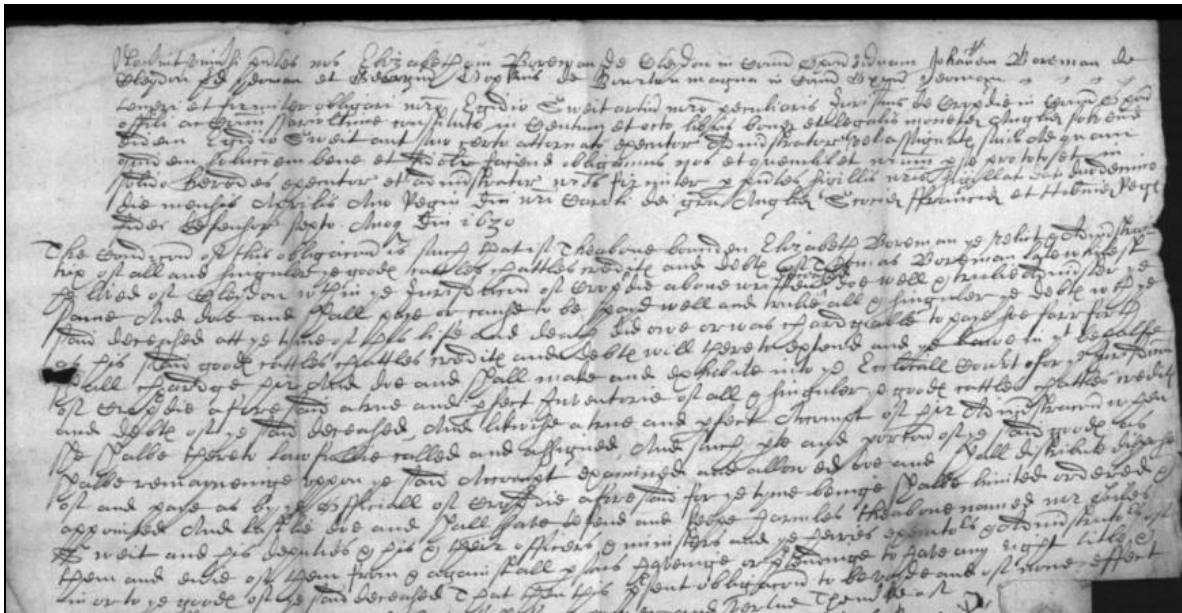 Noverint universi p̱ntes nos Elizabetham Boreman de Cleydon in Com Oxon viduam Johannem Boreman de
Cleydon et Georgium de Bourton magna in Com Oxon yeoman
teneri et firmiter obligari mro Egidio Sweit artium mro peculiaris Jurisdnis de Cropdie in Com Oxon
offili ac Comissario ltime constituto in Centum et octo libris bone et legalis monete Anglie solvend
eidem Egidio Sweit aut suo certo attornato executor Administrator vel assignatis suis Ad quam
quidem soluconem bene et fidelr faciend obligamus nos et quemlibet nrum p se pro toto et in
solido heredes executor et administrator nros firmiter p p̱ntes sigillis nris sigillat dat duodecimo
die mensis Aprilis Ano Regni Dni nri Caroli dei gra Anglie Scocie ffrancie et Hibnie Regis
fidei defensor sexto Anoq Dni 1630
The Condicon of this obligacon is such that if The above bounden Elizabeth Boreman ye relict & Administra-
trix of all and singuler ye goods cattles chattles credits and debts of Thomas Boreman late whilest
he lived of Cleydon within ye Jurisdiccon of Cropdie above written doe well & trulie Administer ye
same And doe and shall paye or cause to be payd well and trulie all & singuler ye debts wch ye
said deceased att ye tyme of his life and death did owe or was chardgeable to paye soe farr forth
as his said goods cattles chattles credits and debts will thereto extend and ye Lawe in yt behalfe
shall chardge hir And doe and shall make and exhibite into ye Ecclicall Court of
of Cropdie aforesaid a true and pfect Inventorie of all & singuler ye goods cattles chattles credits
and debts of ye said deceased, And likwise a true and pfect Accompt of hir Administracon when
she shalbe thereto lawfullie called and assigned, And such pte and porcon of ye said goods as
shalbe remaineinge uppon ye said Accompt examined and allowed doe and shall distribute dispose
of and paye as by ye officiall of Cropdie aforesaid for ye tyme beinge shalbe limited ordered &
appointed And lastlie doe and shall save defend and keepe harmles the above named mr Giles
Sweit and his deputies & his & their officers & ministers and ye heires executors & administrators of
them and everie of them from & against all psons haveinge or p̱tendinge to have any right title &
in or to ye goods of ye said deceased That then this p̱sent obligacon to be voide and of none effect
and vertue